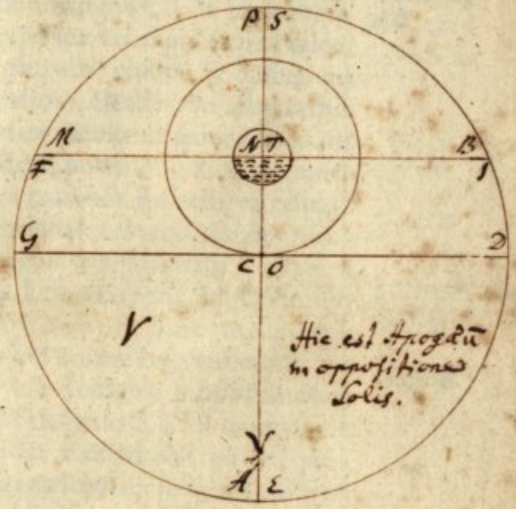 P S
M N T B
F I
G D
C O
V
Hic est Apogæū
in oppositione
Solis.
V
A E